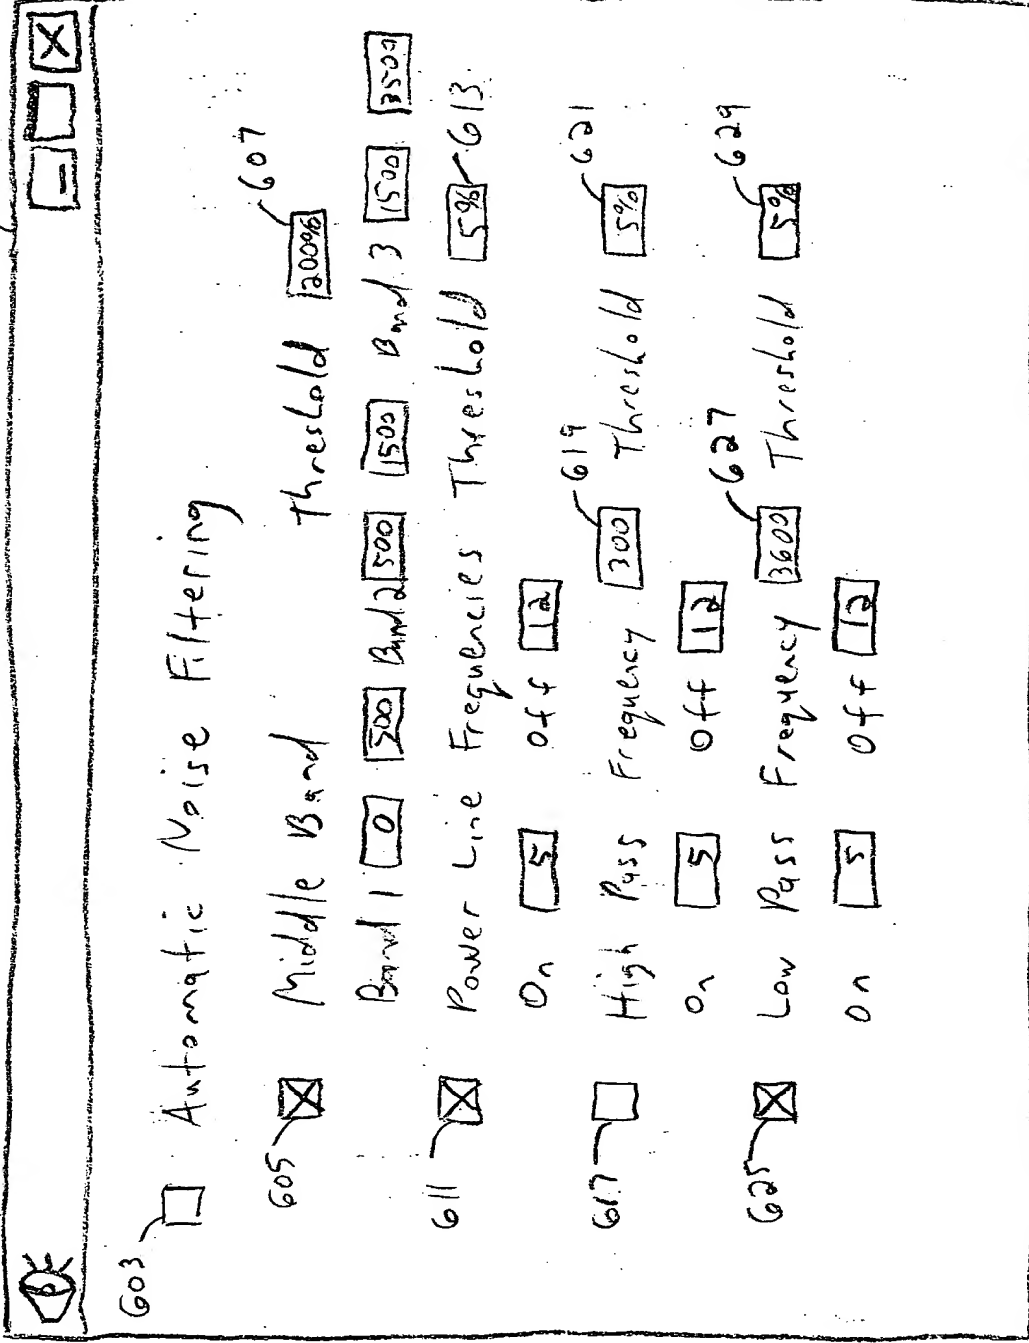 603 Automatic Noise Filtering
605 Middle Band Threshold 200% 607
Band 1 0 500 Band 2 500 1500 Band 3 1500 3500
611 Power Line Frequencies Threshold 5% 613
On 5 Off 12
617 High Pass Frequency 300 619 Threshold 5% 621
On 5 Off 12
625 Low Pass Frequency 3600 627 Threshold 5% 629
On 5 Off 12